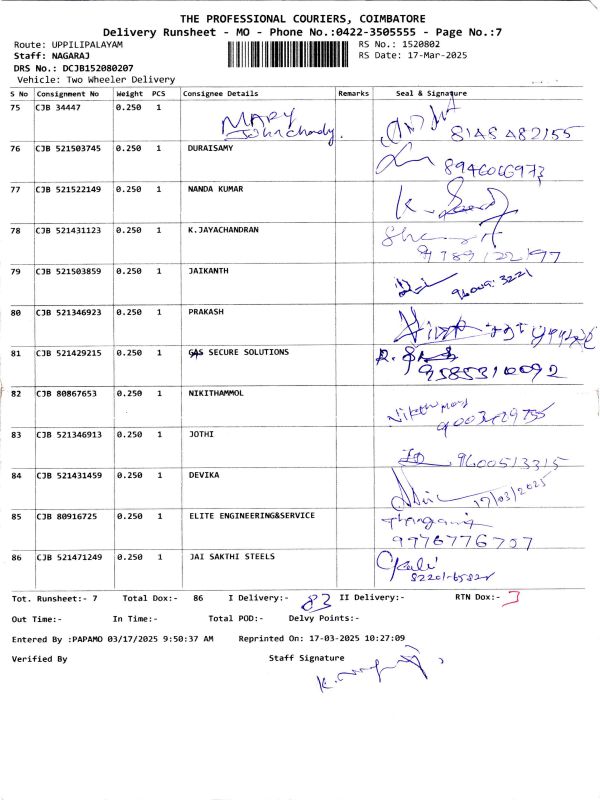 THE PROFESSIONAL COURIERS, COIMBATORE
Delivery Runsheet - MO - Phone No.:0422-3505555 - Page No.:7
Route: UPPILIPALAYAM RS No.: 1520802
Staff: NAGARAJ RS Date: 17-Mar-2025
DRS No.: DCJB152080207
Vehicle: Two Wheeler Delivery
S No Consignment No Weight PCS Consignee Details Remarks Seal & Signature
75 CJB 34447 0.250 1 MARY
Johnchandy.
8148482155
76 CJB 521503745 0.250 1 DURAISAMY
8946066973
77 CJB 521522149 0.250 1 NANDA KUMAR
78 CJB 521431123 0.250 1 K.JAYACHANDRAN
9789122197
79 CJB 521503859 0.250 1 JAIKANTH
80 CJB 521346923 0.250 1 PRAKASH
81 CJB 521429215 0.250 1 GAS SECURE SOLUTIONS
9585310092
82 CJB 80867653 0.250 1 NIKITHAMMOL
83 CJB 521346913 0.250 1 JOTHI
9600513315
84 CJB 521431459 0.250 1 DEVIKA
17/03/2025
85 CJB 80916725 0.250 1 ELITE ENGINEERING&SERVICE
9976776707
86 CJB 521471249 0.250 1 JAI SAKTHI STEELS
Tot. Runsheet:- 7 Total Dox:- 86 I Delivery:- 83 II Delivery:- RTN Dox:- 3
Out Time:- In Time:- Total POD:- Delvy Points:-
Entered By :PAPAMO 03/17/2025 9:50:37 AM Reprinted On: 17-03-2025 10:27:09
Verified By Staff Signature